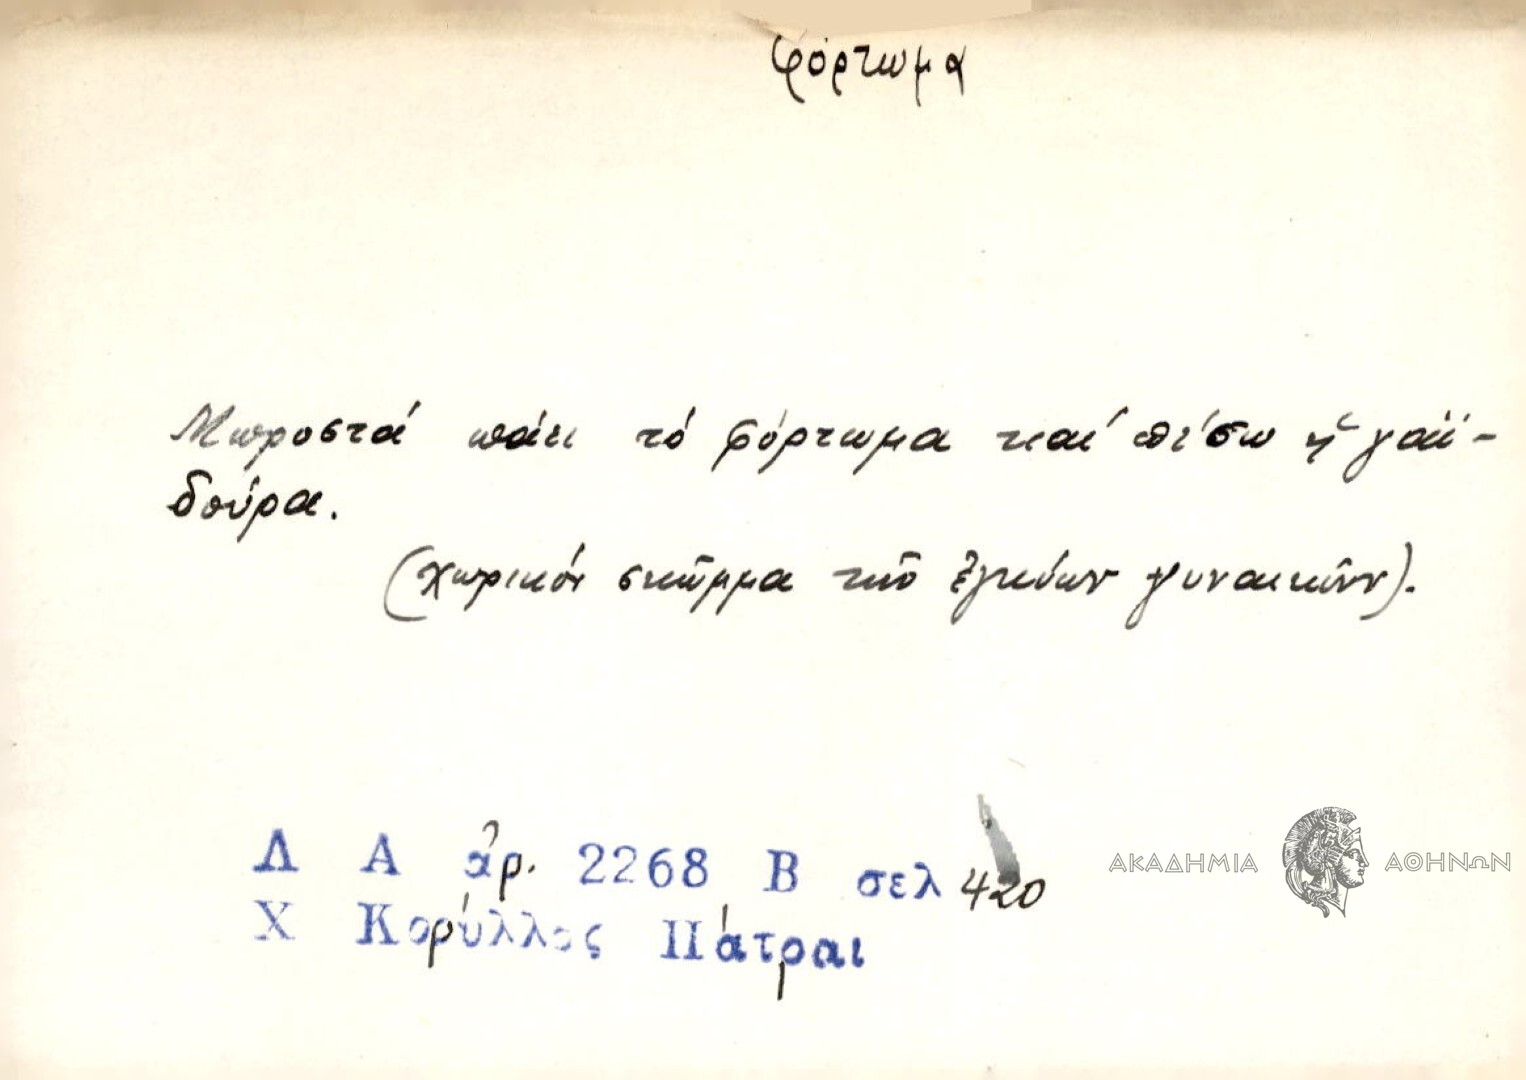 φόρτωμα
Μπροστά πάει τό φόρτωμα καί πίσω ἡ γαϊ-
δούρα.
(χωρικόν σκῶμμα τῶν ἐγκύων γυναικῶν).
Λ Α ἀρ. 2268 Β σελ 420
Χ Κορύλλος Πάτραι
ΑΚΑΔΗΜΙΑ ΑΘΗΝΩΝ